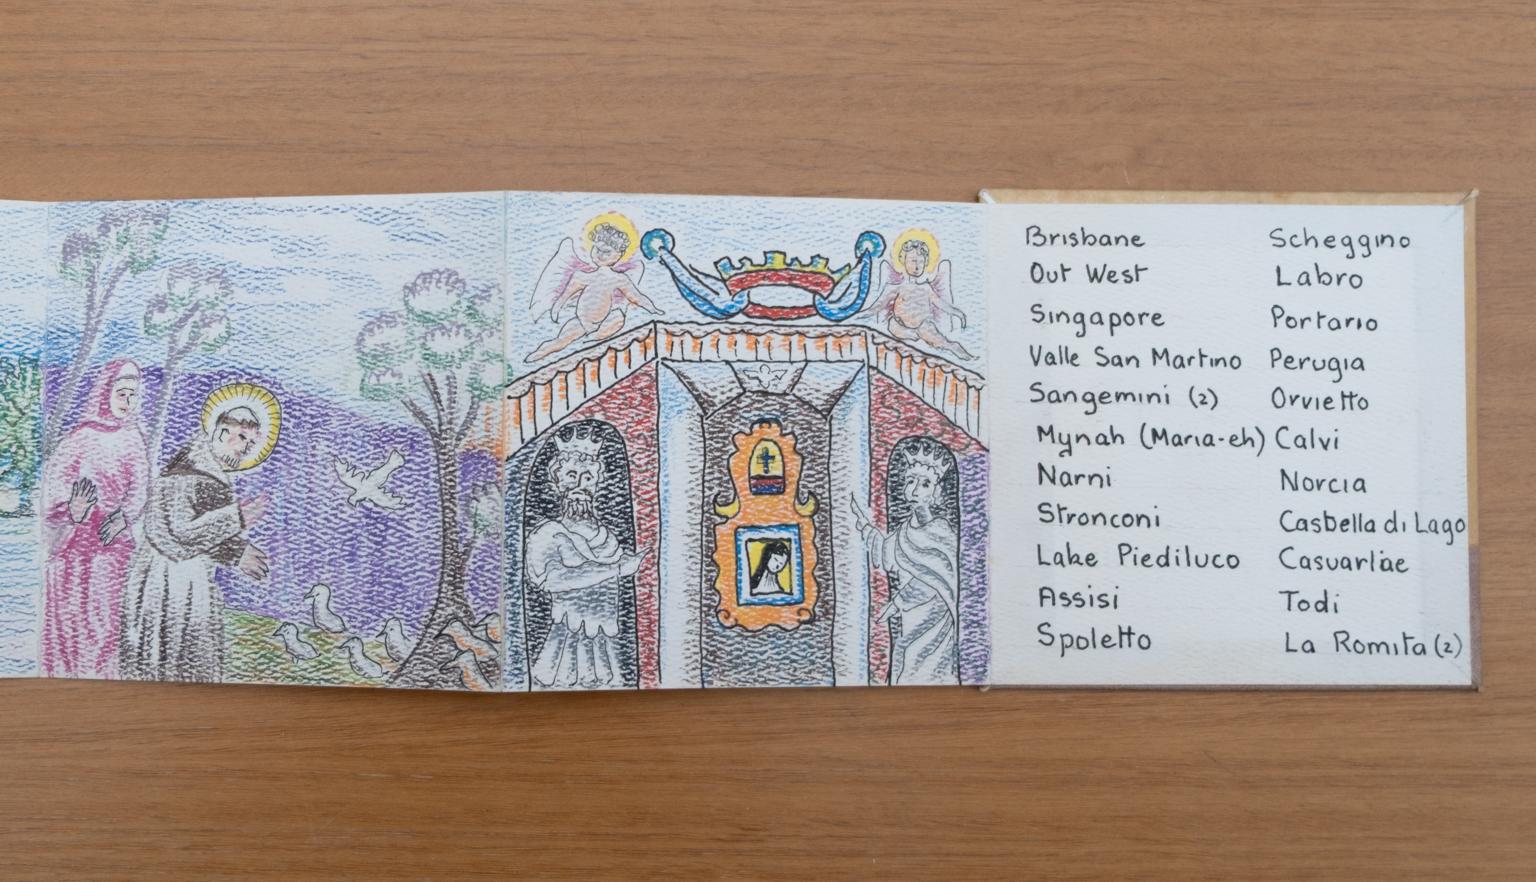 Brisbane
Out West
Singapore
Valle San Martino
Sangemini (2)
Mynah (Maria-eh)
Narni
Stronconi
Lake Piediluco
Assisi
Spoletto
Scheggino
Labro
Portario
Perugia
Orvietto
Calvi
Norcia
Casbella di Lago
Casuarliae
Todi
La Romita (2)